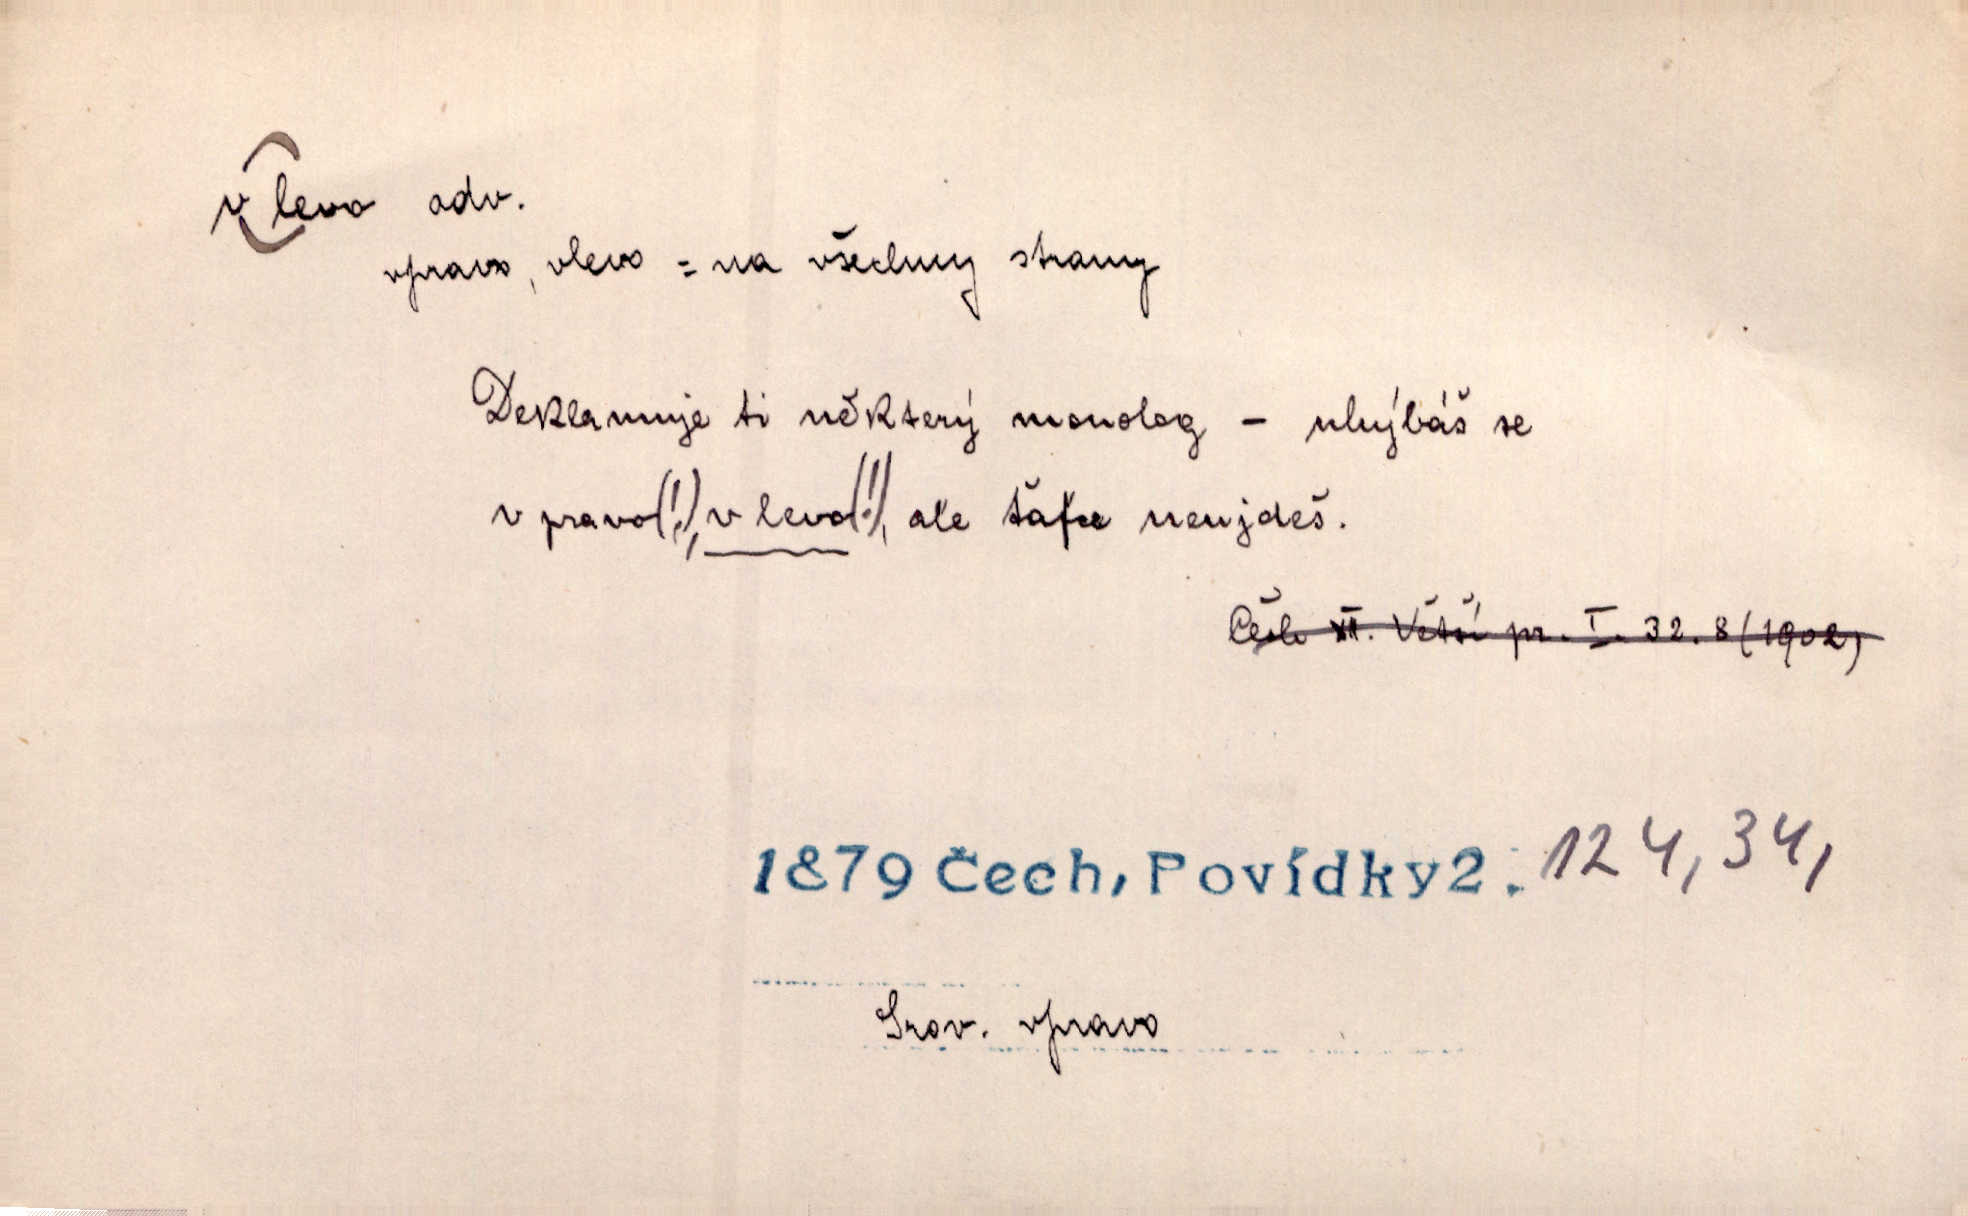 v levo adv.
vpravo, vlevo = na všechny strany
Deklamuje ti některý monolog – uhýbáš se
v pravo(!), v levo(!), ale šafu neujdeš.
Čech VII. Větší pr. I. 32. 8 (1902)
1879 Čech, Povídky 2: 124, 34,
Srov. vpravo